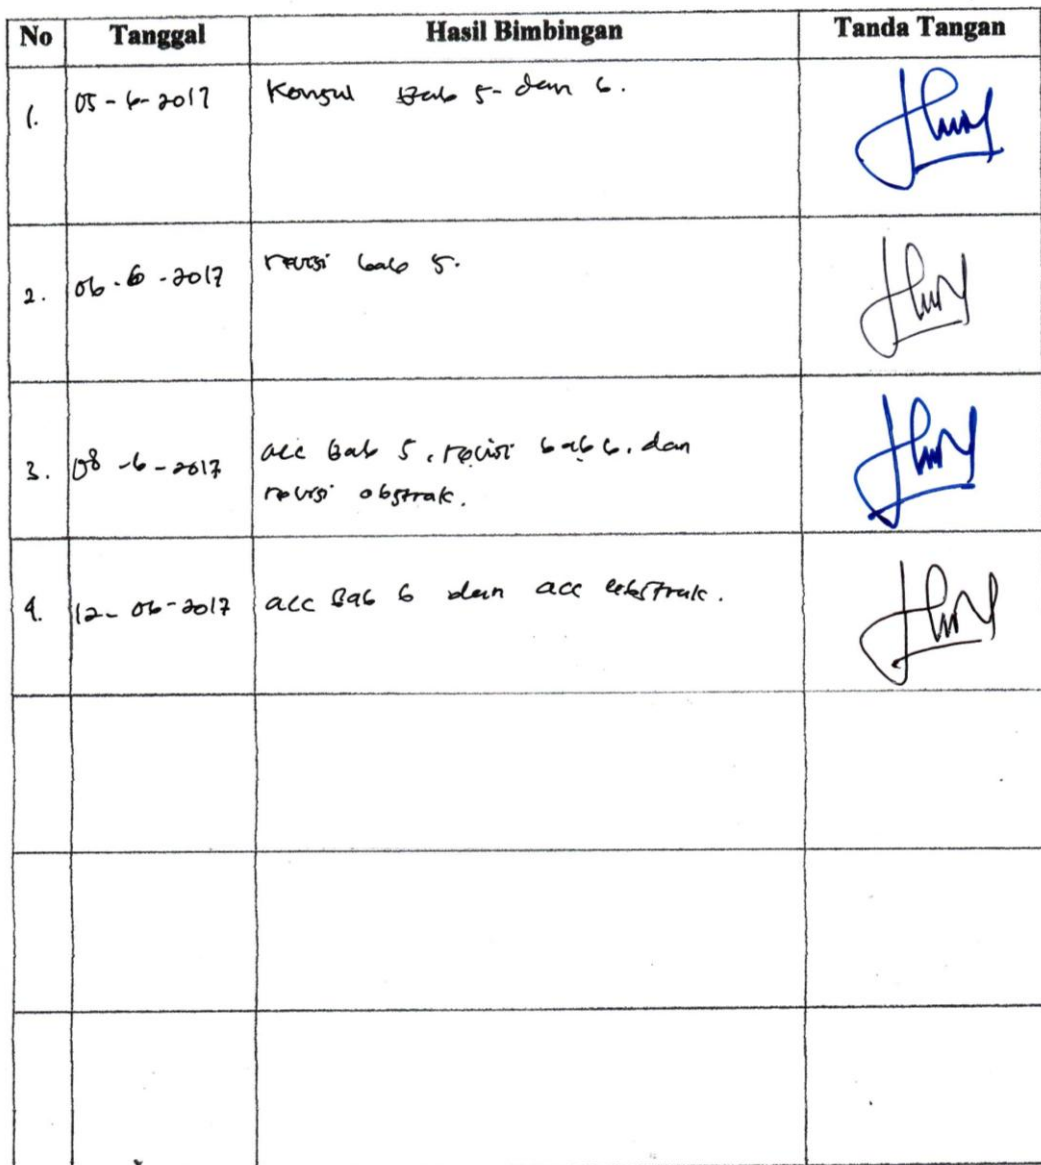 No Tanggal Hasil Bimbingan Tanda Tangan
1. 05-6-2017 Konsul Bab 5 dan 6.
2. 06-6-2017 revisi bab 5.
3. 08-6-2017 acc Bab 5, revisi bab 6, dan
revisi abstrak.
4. 12-06-2017 acc Bab 6 dan acc abstrak.